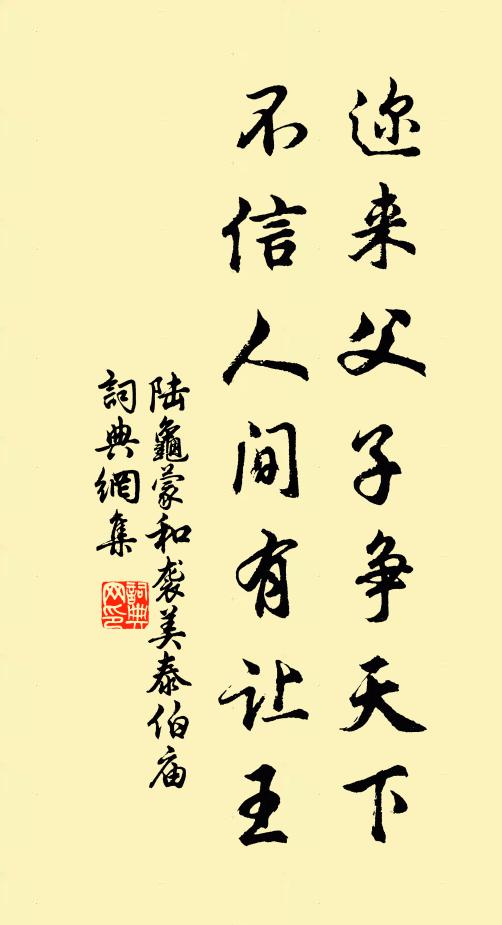 迩来父子争天下
不信人间有让王
陆龜蒙和袭美泰伯庙
詞典網集
詞典
网印